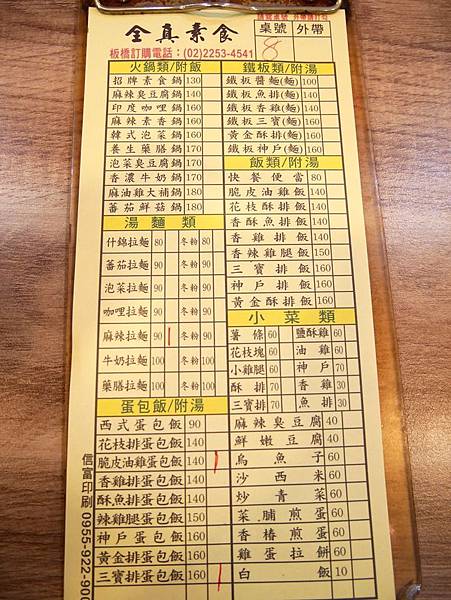 全真素食
請寫桌號 外帶請打勾
桌號 外帶
板橋訂購電話：(02)2253-4541
8
火鍋類/附飯
招牌素食鍋 130
麻辣臭豆腐鍋 140
印度咖哩鍋 160
麻辣素香鍋 160
韓式泡菜鍋 160
養生藥膳鍋 170
泡菜臭豆腐鍋 170
香濃牛奶鍋 170
麻油雞大補鍋 180
蕃茄鮮菇鍋 180
湯麵類
什錦拉麵 80 冬粉 80
蕃茄拉麵 90 冬粉 90
泡菜拉麵 90 冬粉 90
咖哩拉麵 90 冬粉 90
麻辣拉麵 90 冬粉 90
牛奶拉麵 100 冬粉 100
藥膳拉麵 100 冬粉 100
蛋包飯/附湯
西式蛋包飯 90
花枝排蛋包飯 140
脆皮油雞蛋包飯 140
香雞排蛋包飯 140
酥魚排蛋包飯 140
辣雞腿蛋包飯 150
神戶蛋包飯 160
黃金排蛋包飯 160
三寶排蛋包飯 160
鐵板類/附湯
鐵板醬麵(麵) 100
鐵板魚排(麵) 140
鐵板香雞(麵) 140
鐵板三寶(麵) 160
黃金酥排(麵) 160
鐵板神戶(麵) 160
飯類/附湯
快餐便當 80
脆皮油雞飯 140
花枝酥排飯 140
香酥魚排飯 140
香雞排飯 140
香辣雞腿飯 150
三寶排飯 160
神戶排飯 160
黃金酥排飯 160
小菜類
薯條 60 鹽酥雞 60
花枝塊 60 油雞 60
小雞腿 60 神戶 70
酥排 70 香雞 30
三寶排 70 魚排 30
麻辣臭豆腐 40
鮮嫩豆腐 40
烏魚子 60
沙西米 60
炒青菜 60
菜脯煎蛋 60
香椿煎蛋 60
雞蛋拉餅 60
白飯 10
信富印刷 0955-922-900